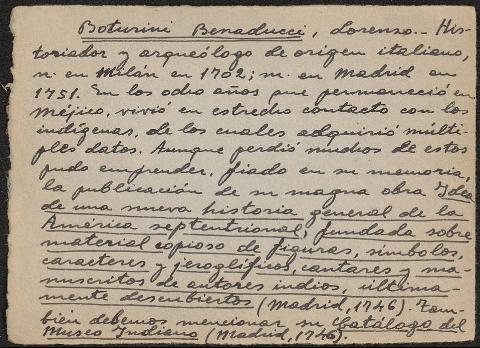 Boturini Benaducci, Lorenzo.- His-
toriador y arqueólogo de origen italiano,
n. en Milán en 1702; m. en Madrid en
1751. En los ocho años que permaneció en
Méjico, vivió en estrecho contacto con los
indígenas, de los cuales adquirió múlti-
ples datos. Aunque perdió muchos de estos
pudo emprender, fiado en su memoria,
la publicación de su magna obra Idea
de una nueva historia general de la
América septentrional, fundada sobre
material copioso de figuras, símbolos,
caracteres y jeroglíficos, cantares y ma-
nuscritos de autores indios, última-
mente descubiertos (Madrid, 1746). Tam-
bién debemos mencionar su Catálogo del
Museo Indiano (Madrid, 1746).